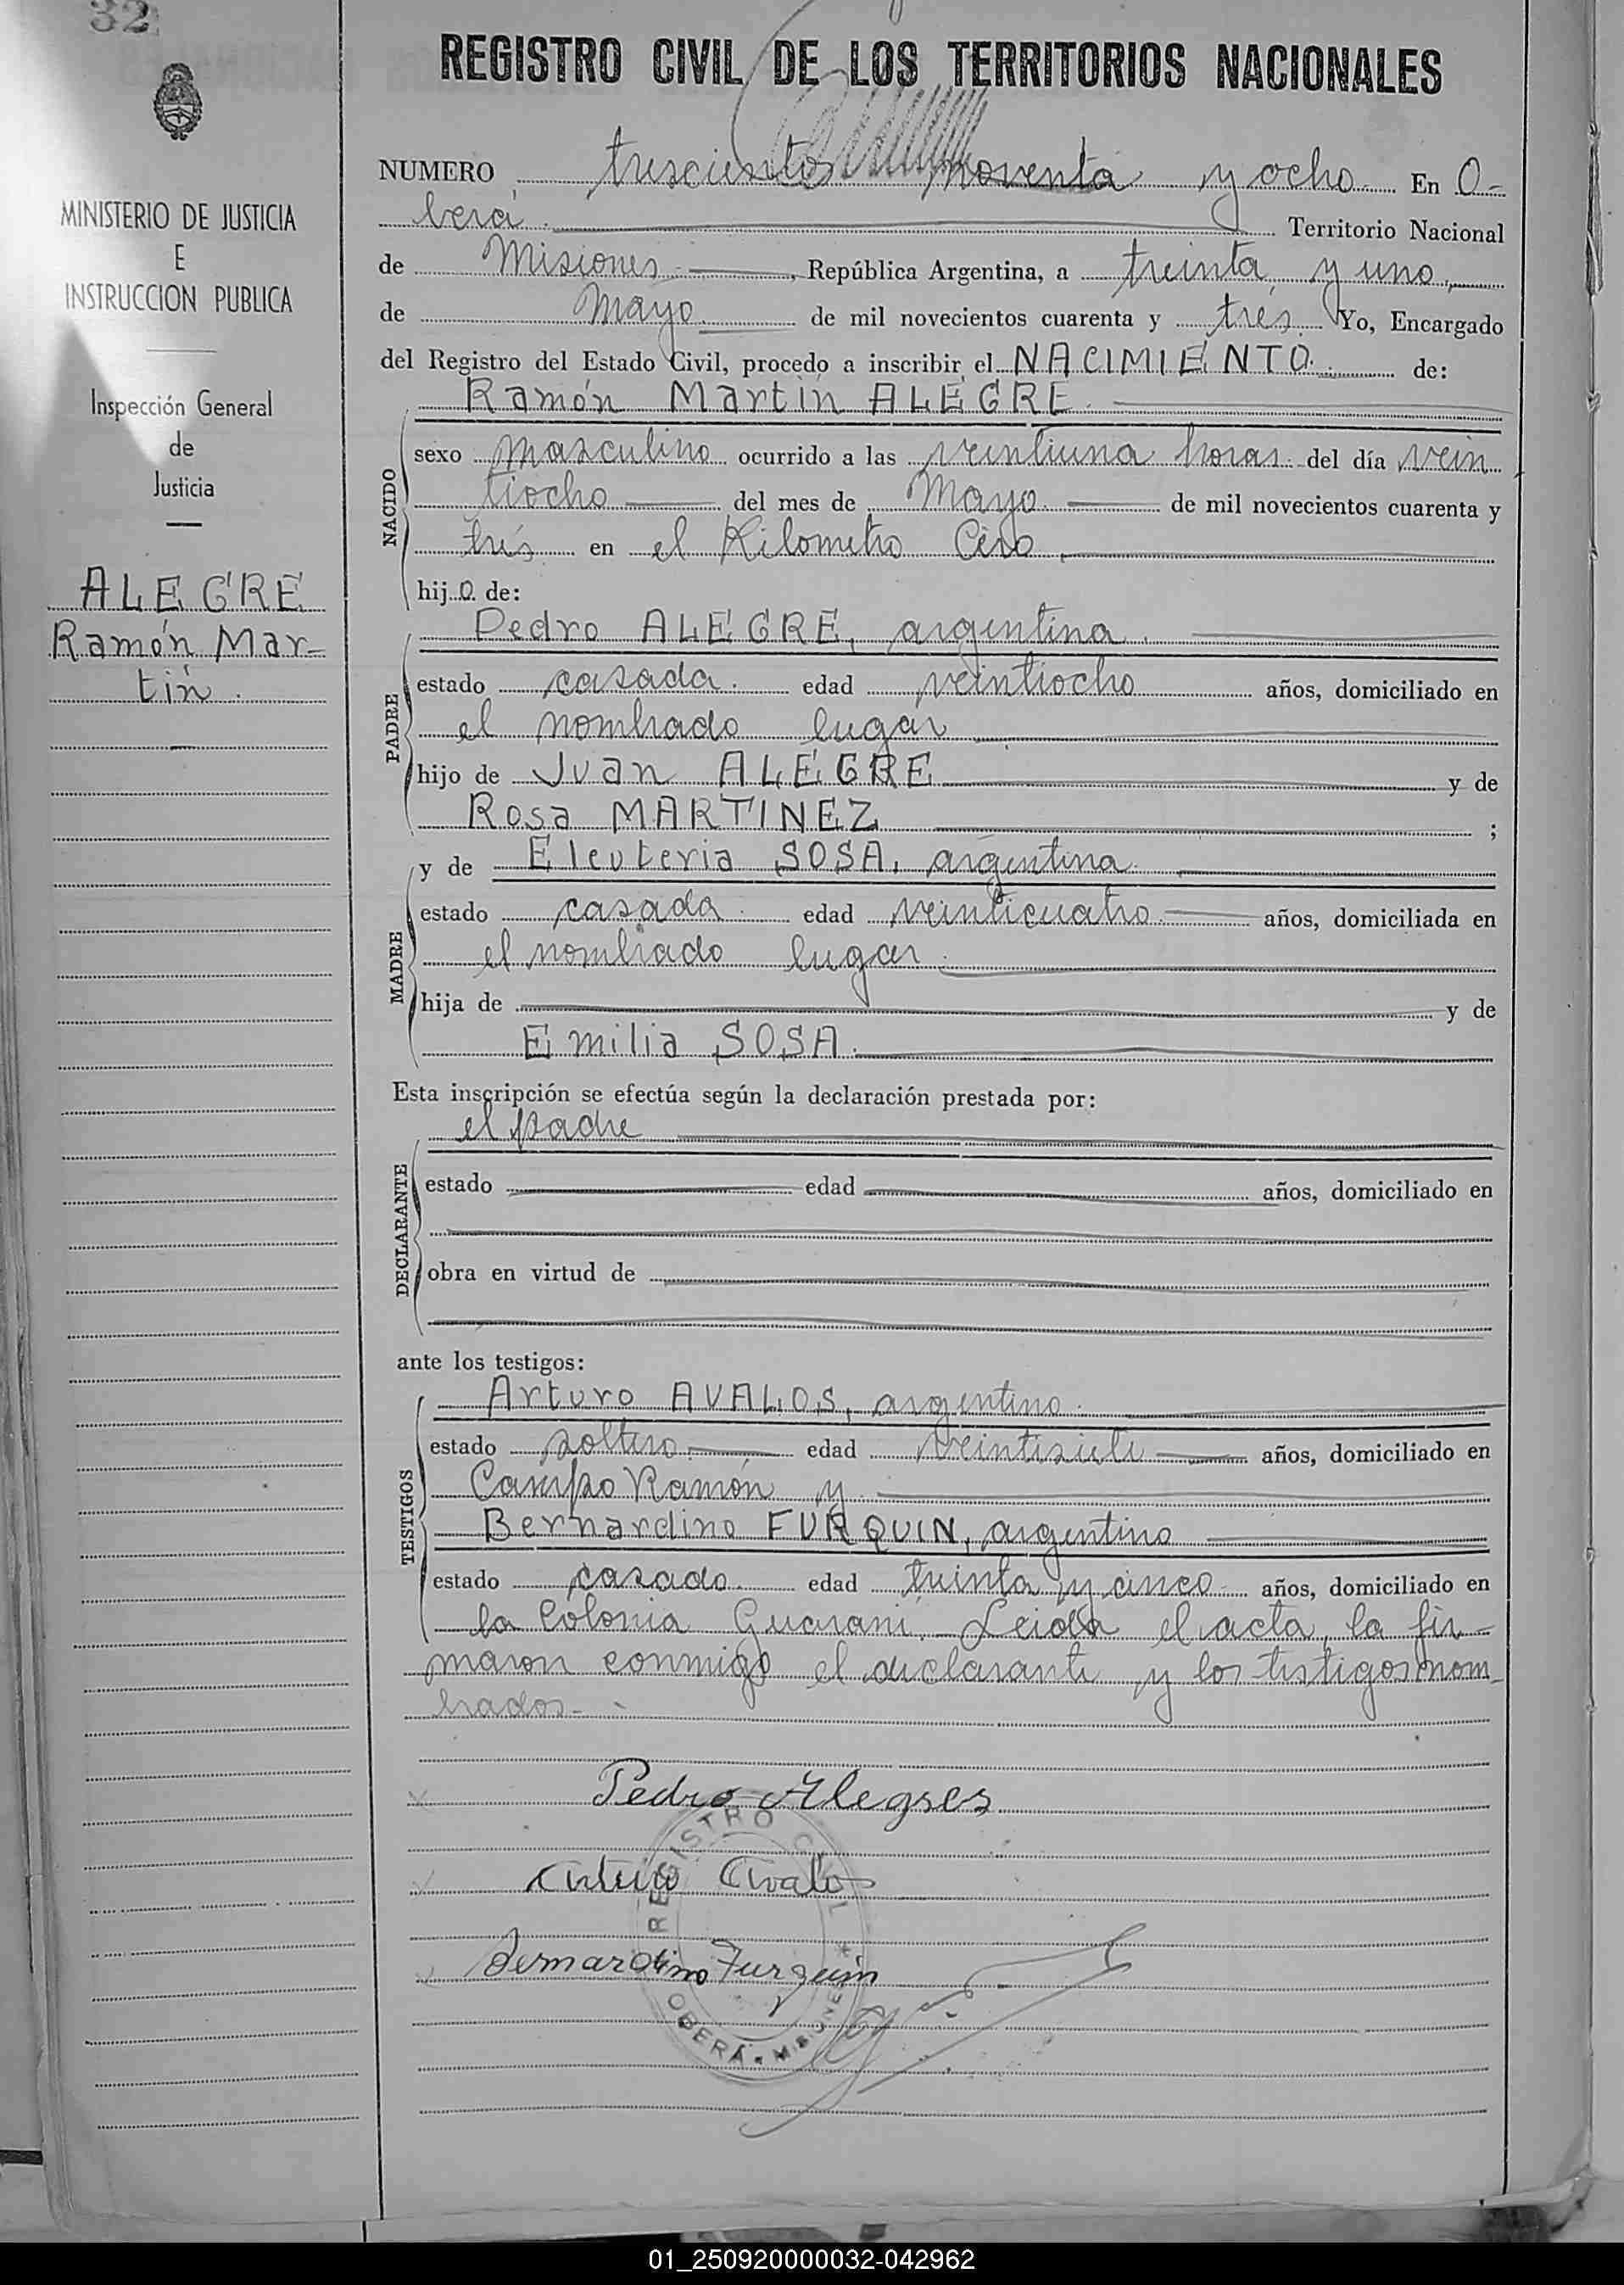 32
REGISTRO CIVIL DE LOS TERRITORIOS NACIONALES
MINISTERIO DE JUSTICIA
E
INSTRUCCION PUBLICA
Inspección General
de
Justicia
ALEGRE
Ramón Mar-
tín.
NUMERO trescientos noventa y ocho. En O-
berá. Territorio Nacional
de Misiones, República Argentina, a treinta y uno,
de Mayo de mil novecientos cuarenta y trés. Yo, Encargado
del Registro del Estado Civil, procedo a inscribir el NACIMIENTO. de:
Ramón Martín ALEGRE.
NACIDO
sexo masculino ocurrido a las veintiuna horas del día vein
tiocho del mes de Mayo de mil novecientos cuarenta y
trés en el Kilometro Cero,
hijo de:
PADRE
Pedro ALEGRE, argentina.
estado casada. edad veintiocho años, domiciliado en
el nombrado lugar
hijo de Juan ALEGRE y de
Rosa MARTINEZ ;
MADRE
y de Eleuteria SOSA, argentina.
estado casada. edad veinticuatro años, domiciliada en
el nombrado lugar.
hija de y de
Emilia SOSA.
Esta inscripción se efectúa según la declaración prestada por:
DECLARANTE
el padre
estado edad años, domiciliado en
obra en virtud de
ante los testigos:
TESTIGOS
Arturo AVALOS, argentino.
estado soltero. edad veintisiete años, domiciliado en
Campo Ramón y
Bernardino FURQUIN, argentino
estado casado. edad treinta y cinco años, domiciliado en
la Colonia Guarani. Leida el acta, la fir-
maron conmigo el declarante y los testigos nom
brados.-
Pedro Alegres
Arturo Avalos
Bernardino Furquim
REGISTRO CIVIL
OBERÁ. MISIONES
01_250920000032-042962